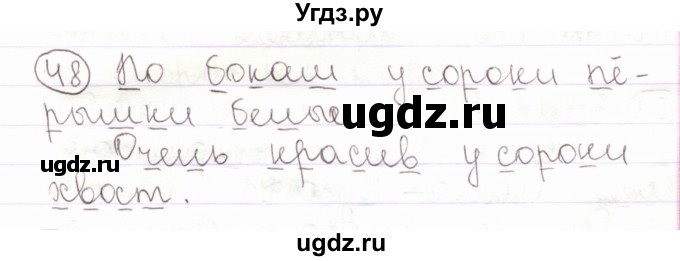 Угдз.ру
48 По бокам у сороки пё-
рышки белые ugdz.ru
ugdz.ru Очень красив у сороки
хвост. ugdz.ru
ugdz.ru